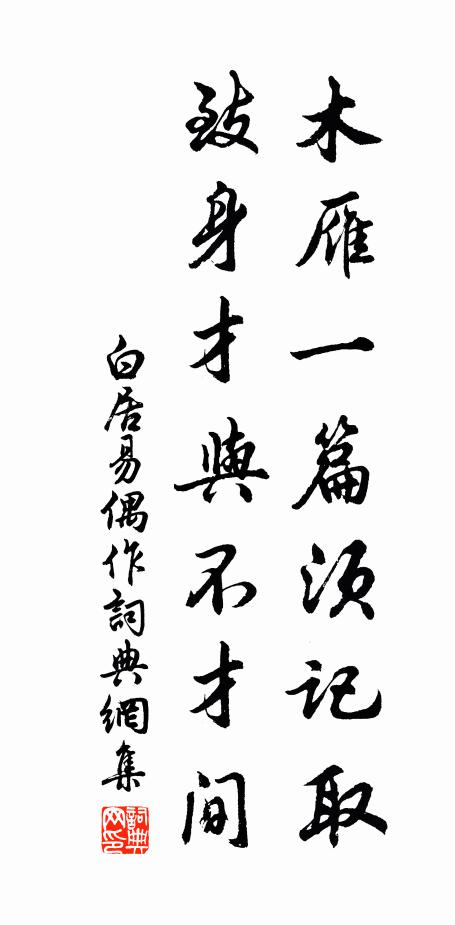 木雁一篇須記取
致身才與不才間
白居易偶作詞典網集
詞典網印